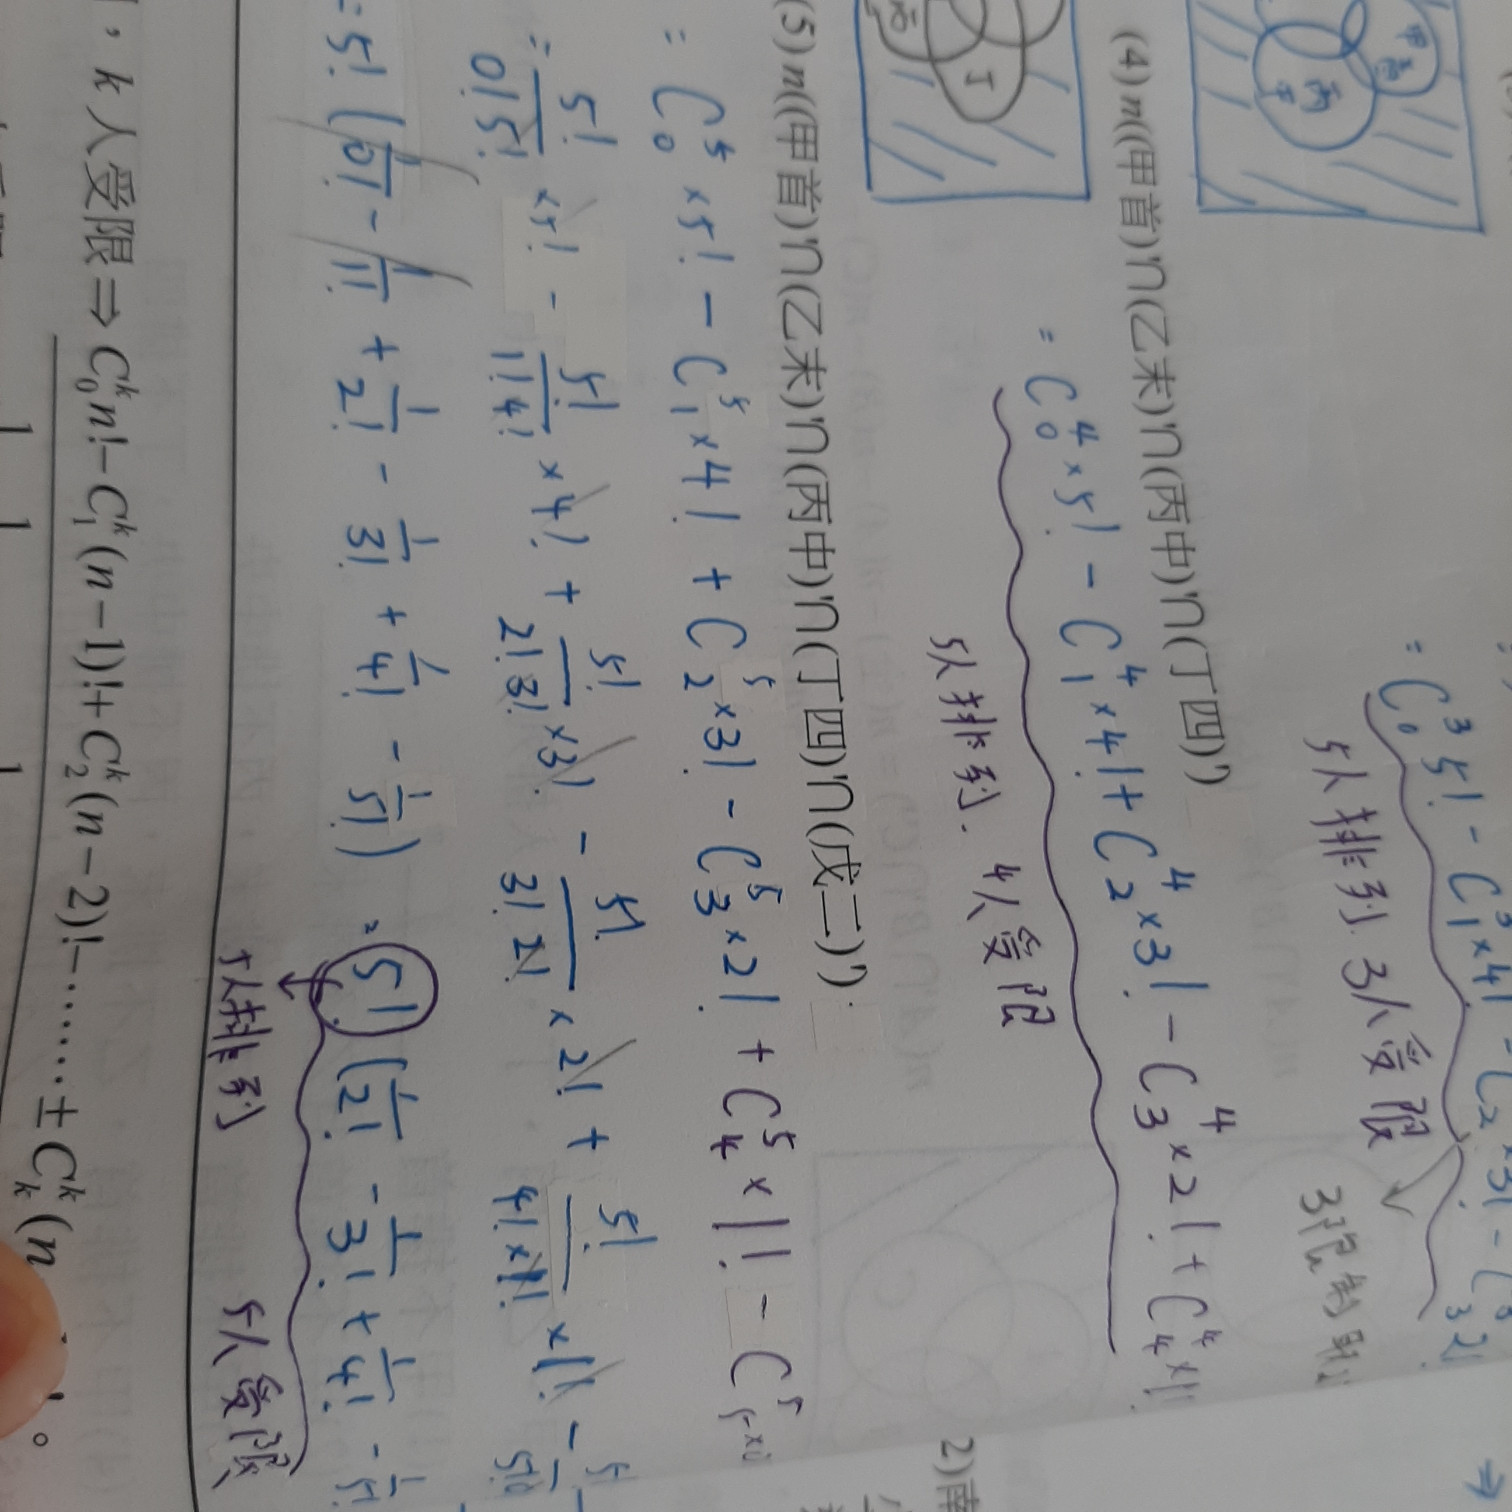 甲首
丙
中
= C₀³ 5! - C₁³×4! - C₂ ×3! - C₃ 2!
5人排列 3人受限
3限制
(4) n((甲首)'∩(乙末)'∩(丙中)'∩(丁四)')
= C₀⁴×5! - C₁⁴×4! + C₂⁴×3! - C₃⁴×2! + C₄⁴×1!
5人排列. 4人受限
丁
(5) n((甲首)'∩(乙末)'∩(丙中)'∩(丁四)'∩(戊二)')
= C₀⁵×5! - C₁⁵×4! + C₂⁵×3! - C₃⁵×2! + C₄⁵×1! - C₅⁵×0!
= 5!/0!5! ×5! - 5!/1!4! ×4! + 5!/2!3! ×3! - 5!/3!2! ×2! + 5!/4!×1! ×1! - 5!/5!0!
= 5! (1/0! - 1/1! + 1/2! - 1/3! + 1/4! - 1/5!) = 5! (1/2! - 1/3! + 1/4! - 1/5!
5人排列 5人受限
，k人受限⇒C₀ᵏn!−C₁ᵏ(n−1)!+C₂ᵏ(n−2)!−⋯⋯±Cₖᵏ(n !。
2)南